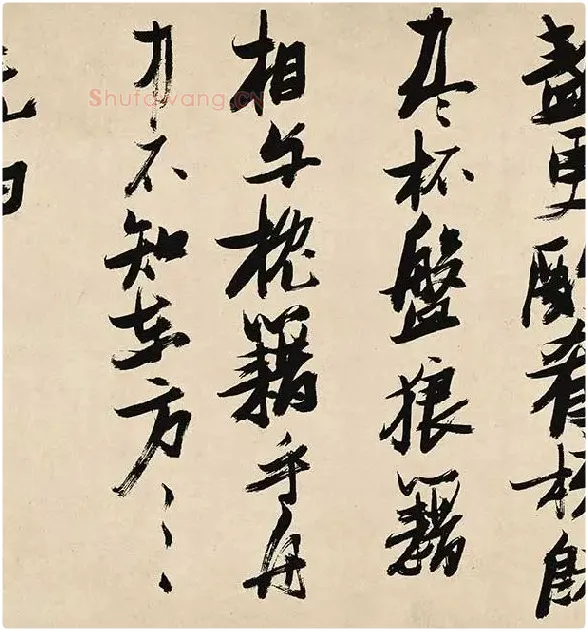 盞更酌肴核既
尽杯盤狼籍
相与枕籍乎舟
中不知东方
既白
Shufawang.CN